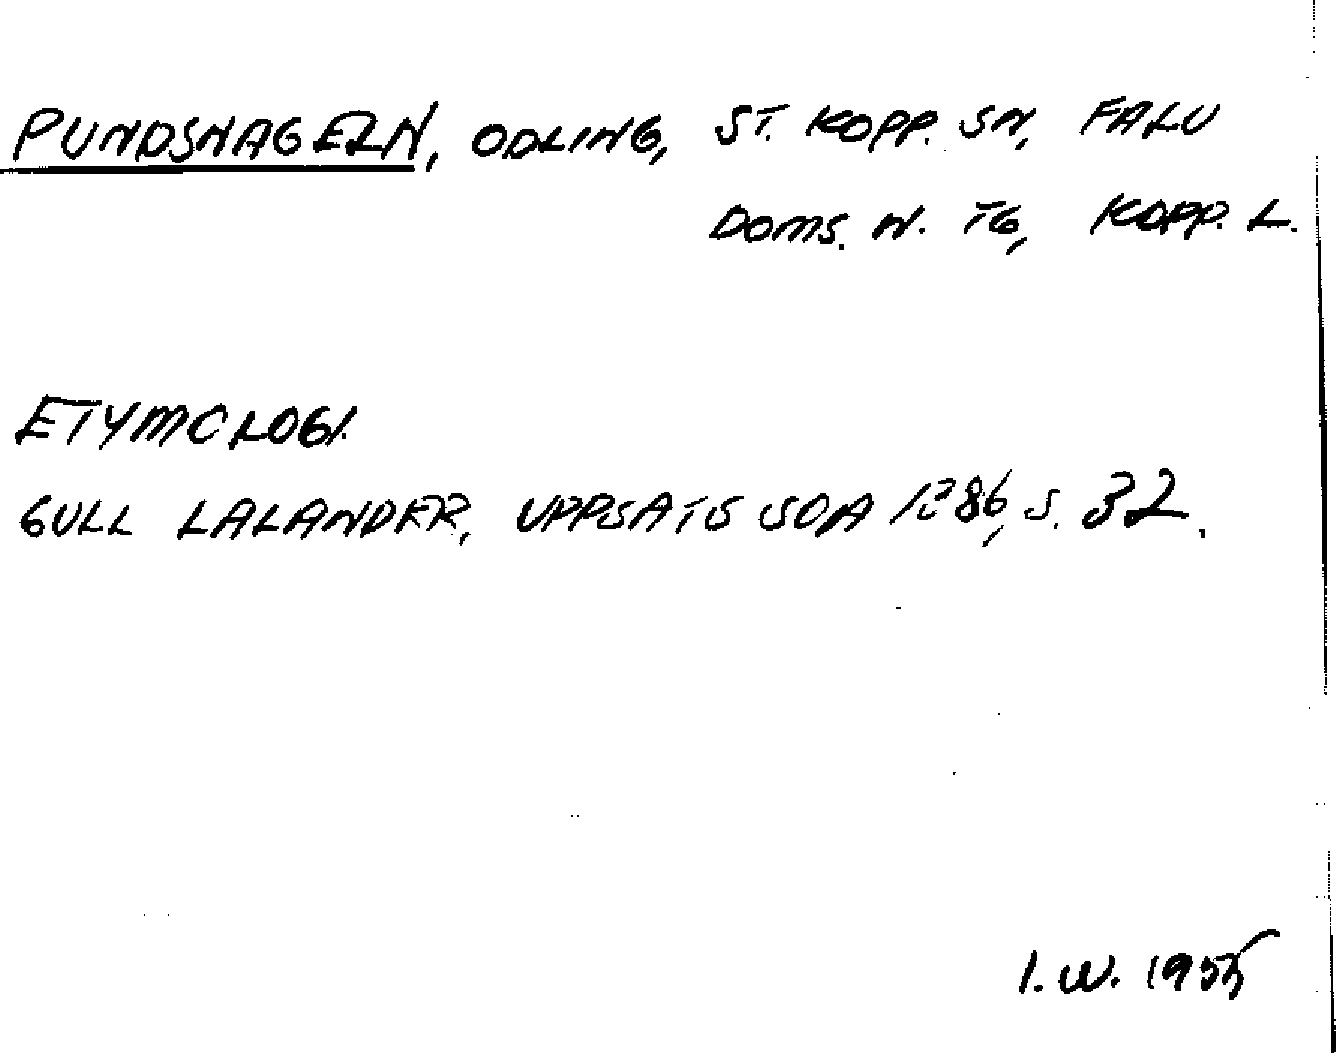 PUNDSHAGEN, ODLING, ST. KOPP. SN, FALU
DOMS. N. TG, KOPP. L.
ETYMOLOGI.
GULL LALANDER, UPPSATS SOA 1386, S. 32.
I. W. 1955